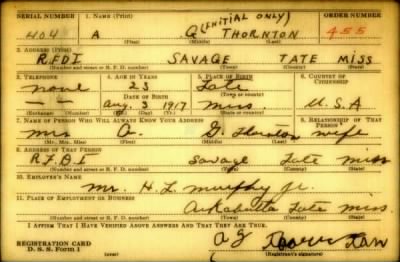 SERIAL NUMBER 1. NAME (Print) ORDER NUMBER
404 A G (INITIAL ONLY) THORNTON 455
(First) (Middle) (Last)
2. ADDRESS (Print)
R.F.D.I SAVAGE TATE MISS
(Number and street or R. F. D. number) (Town) (County) (State)
3. TELEPHONE 4. AGE IN YEARS 5. PLACE OF BIRTH 6. COUNTRY OF CITIZENSHIP
none 23 Tate
DATE OF BIRTH (Town or county)
-- Aug. 3 1917 miss. U.S.A
(Exchange) (Number) (Mo.) (Day) (Yr.) (State or country)
7. NAME OF PERSON WHO WILL ALWAYS KNOW YOUR ADDRESS 8. RELATIONSHIP OF THAT PERSON
mrs a. G. Thornton wife
(Mr., Mrs., Miss) (First) (Middle) (Last)
9. ADDRESS OF THAT PERSON
R.F.D.I Savage Tate miss
(Number and street or R. F. D. number) (Town) (County) (State)
10. EMPLOYER'S NAME
mr. H. L. murphy jr.
11. PLACE OF EMPLOYMENT OR BUSINESS
Arkabutla Tate miss
(Number and street or R. F. D. number) (Town) (County) (State)
I AFFIRM THAT I HAVE VERIFIED ABOVE ANSWERS AND THAT THEY ARE TRUE.
REGISTRATION CARD
D. S. S. Form 1 (Registrant's signature)